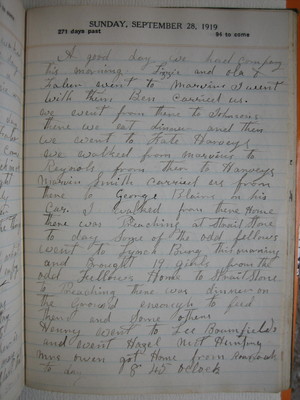 SUNDAY, SEPTEMBER 28, 1919
271 days past 94 to come
A good day we had Company
this morning Lizzie and Ola &
went to Marvins I went
with them Ben carried us.
we went from there to
there we eat dinner and then
we went to Kate Harveys
we walked from Marvins to
Reynols from them to Harveys
Marvin Smith carried us from
there to George Blairs in his
Car. I walked from there Home
there was Preaching at Strait Stone
to day Some of the odd fellows
went to Lynch Burg this morning
and Bought 19 girls from the
odd Fellows Home to Strait Stone
to Preaching there was dinner on
the ground enough to feed
them and Some others
Henry went to Lee Bournfields
and went Hazel Nott Hunting
Mrs Owen got Home from
to day 8 45 oclock